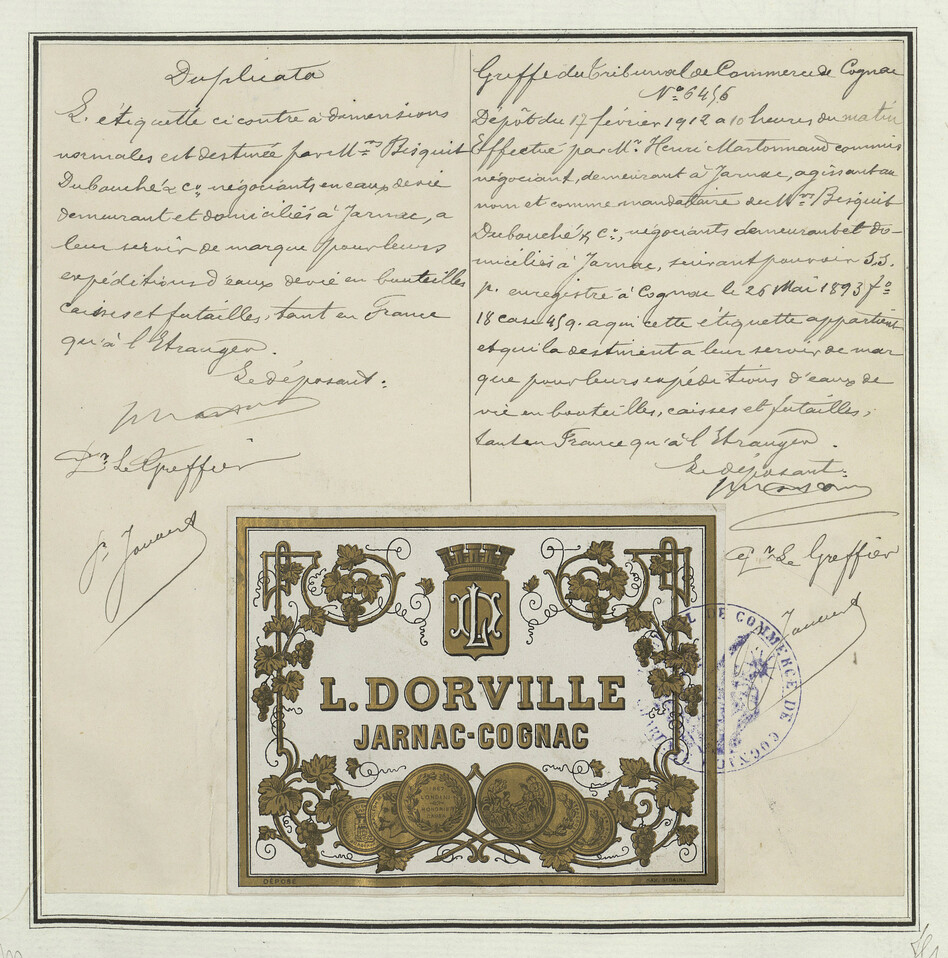 Duplicata
L'étiquette ci contre à dimensions
normales est destinée par M.rs Bisquit
Dubouché & Co, négociants en eaux de vie
demeurant et domiciliés à Jarnac, a
leur servir de marque pour leurs
expéditions d'eaux de vie en bouteilles
caisses et futailles, tant en France
qu'à l'Etranger.
Le déposant:
Pr Le Greffier
Greffe du Tribunal de Commerce de Cognac
No 6456
Dépôt du 17 février 1912 a 10 heures du matin
Effectué par Mr. Henri commis
négociant, demeurant à Jarnac, agissant au
nom et comme mandataire de M.rs Bisquit
Dubouché & Co, négociants demeurant et do-
miciliés à Jarnac, suivant pouvoir S.S.
p. enregistré à Cognac le 26 Mai 1893 fo
18 case 459. a qui cette étiquette appartient
et qui la destinent a leur servir de mar
que pour leurs expéditions d'eaux de
vie en bouteilles, caisses et futailles,
tant en France qu'à l'Etranger.
Le déposant:
Pr Le Greffier
L. DORVILLE
JARNAC-COGNAC
DÉPOSÉ
DE COMMERCE DE COGNAC